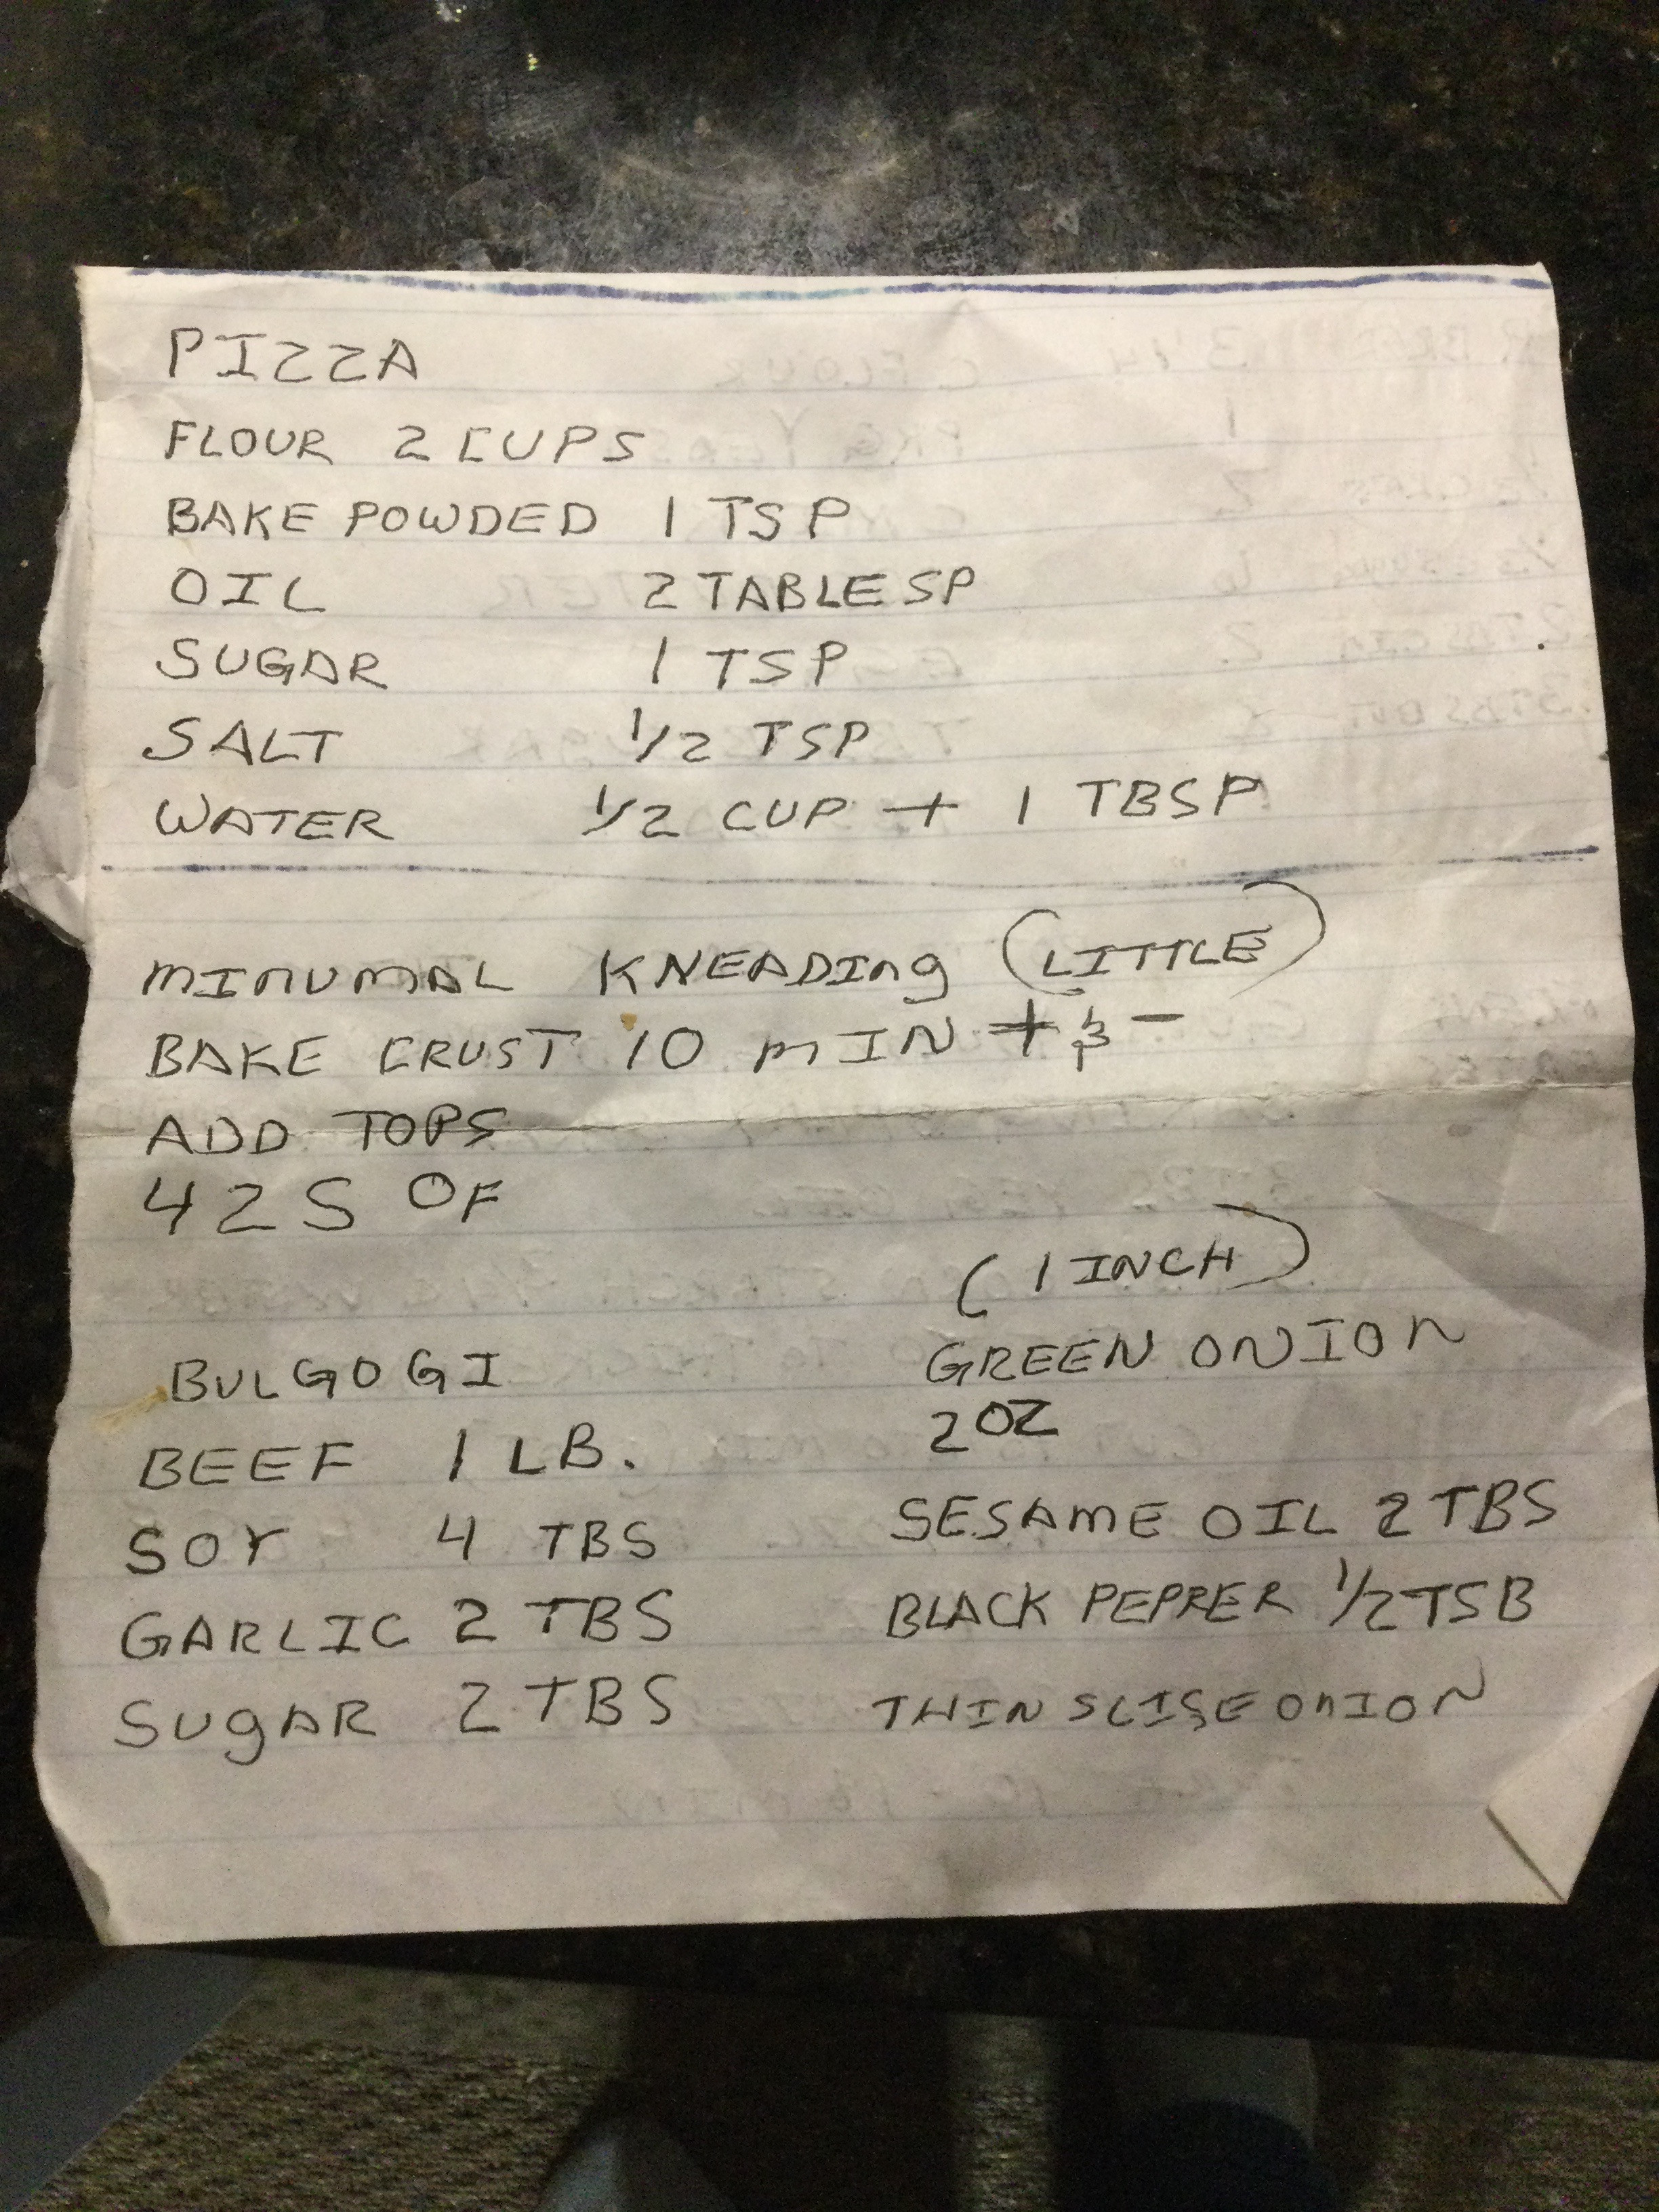 PIZZA
FLOUR 2 CUPS
BAKE POWDED 1 TSP
OIL 2 TABLESP
SUGAR 1 TSP
SALT 1/2 TSP
WATER 1/2 CUP + 1 TBSP
MINUMAL KNEADING (LITTLE)
BAKE CRUST 10 MIN + & -
ADD TOPS
425 OF
BULGOGI
BEEF 1 LB.
SOY 4 TBS
GARLIC 2 TBS
SUGAR 2 TBS
(1 INCH)
GREEN ONION
2 OZ
SESAME OIL 2 TBS
BLACK PEPPER 1/2 TSB
THIN SLISE ONION